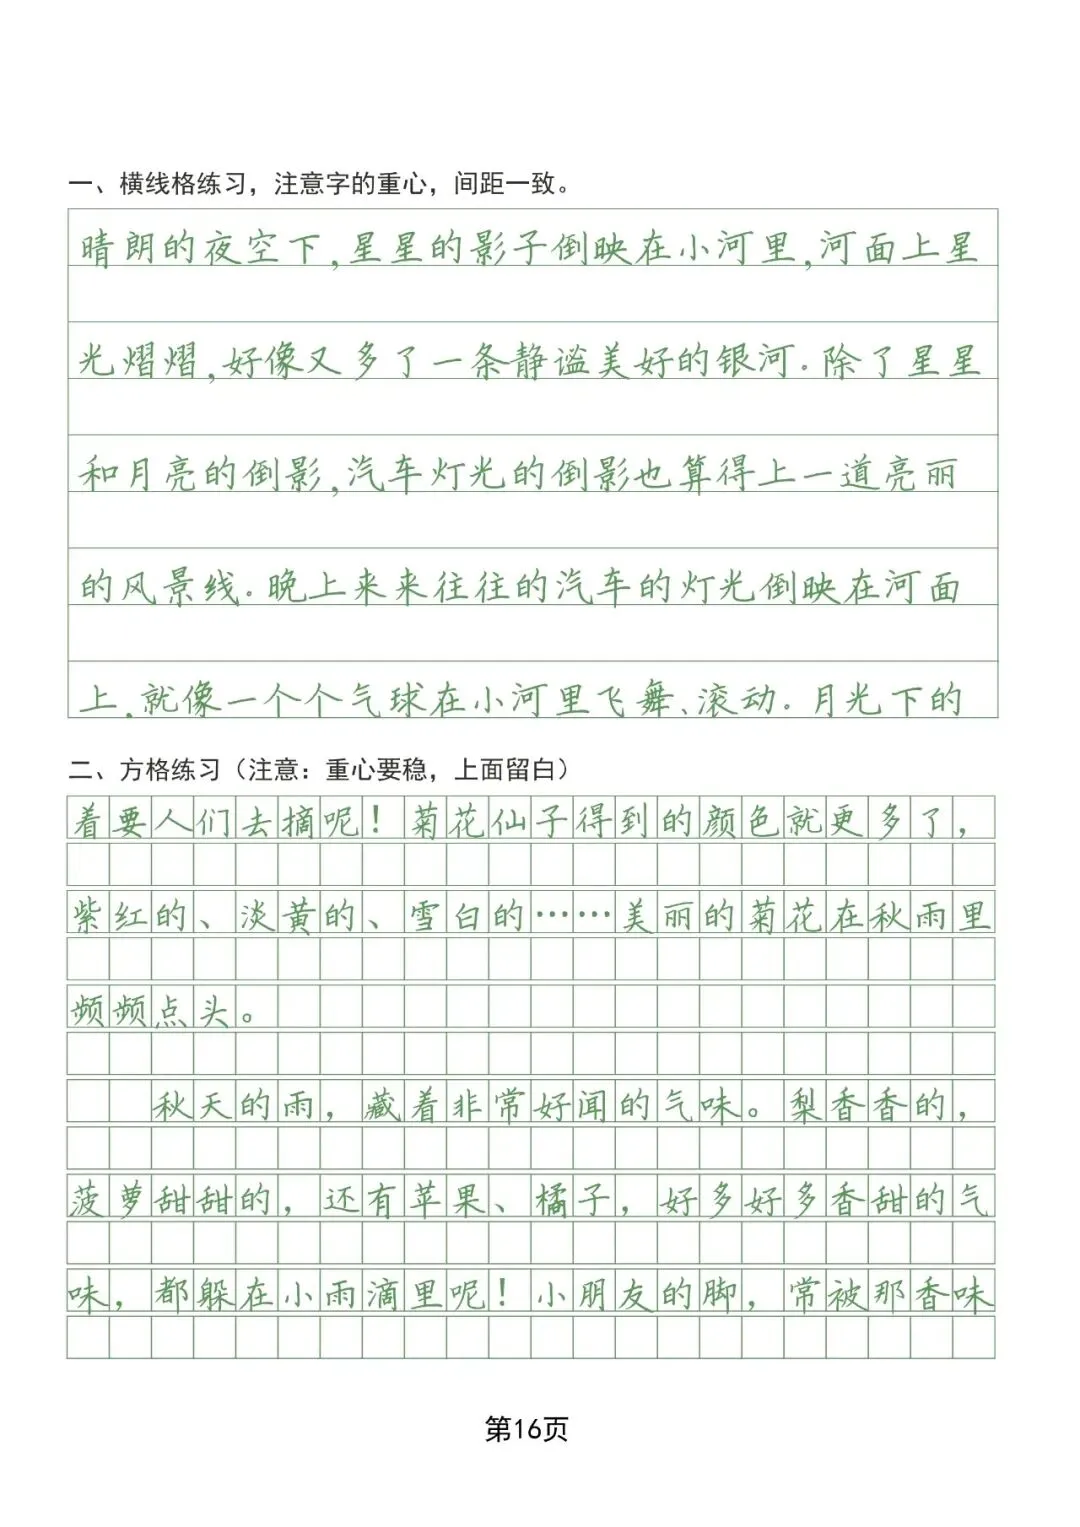 一、横线格练习，注意字的重心，间距一致。
晴朗的夜空下,星星的影子倒映在小河里,河面上星
光熠熠,好像又多了一条静谧美好的银河.除了星星
和月亮的倒影,汽车灯光的倒影也算得上一道亮丽
的风景线.晚上来来往往的汽车的灯光倒映在河面
上,就像一个个气球在小河里飞舞、滚动.月光下的
二、方格练习（注意：重心要稳，上面留白）
着要人们去摘呢！菊花仙子得到的颜色就更多了，
紫红的、淡黄的、雪白的……美丽的菊花在秋雨里
频频点头。
秋天的雨，藏着非常好闻的气味。梨香香的，
菠萝甜甜的，还有苹果、橘子，好多好多香甜的气
味，都躲在小雨滴里呢！小朋友的脚，常被那香味
第16页